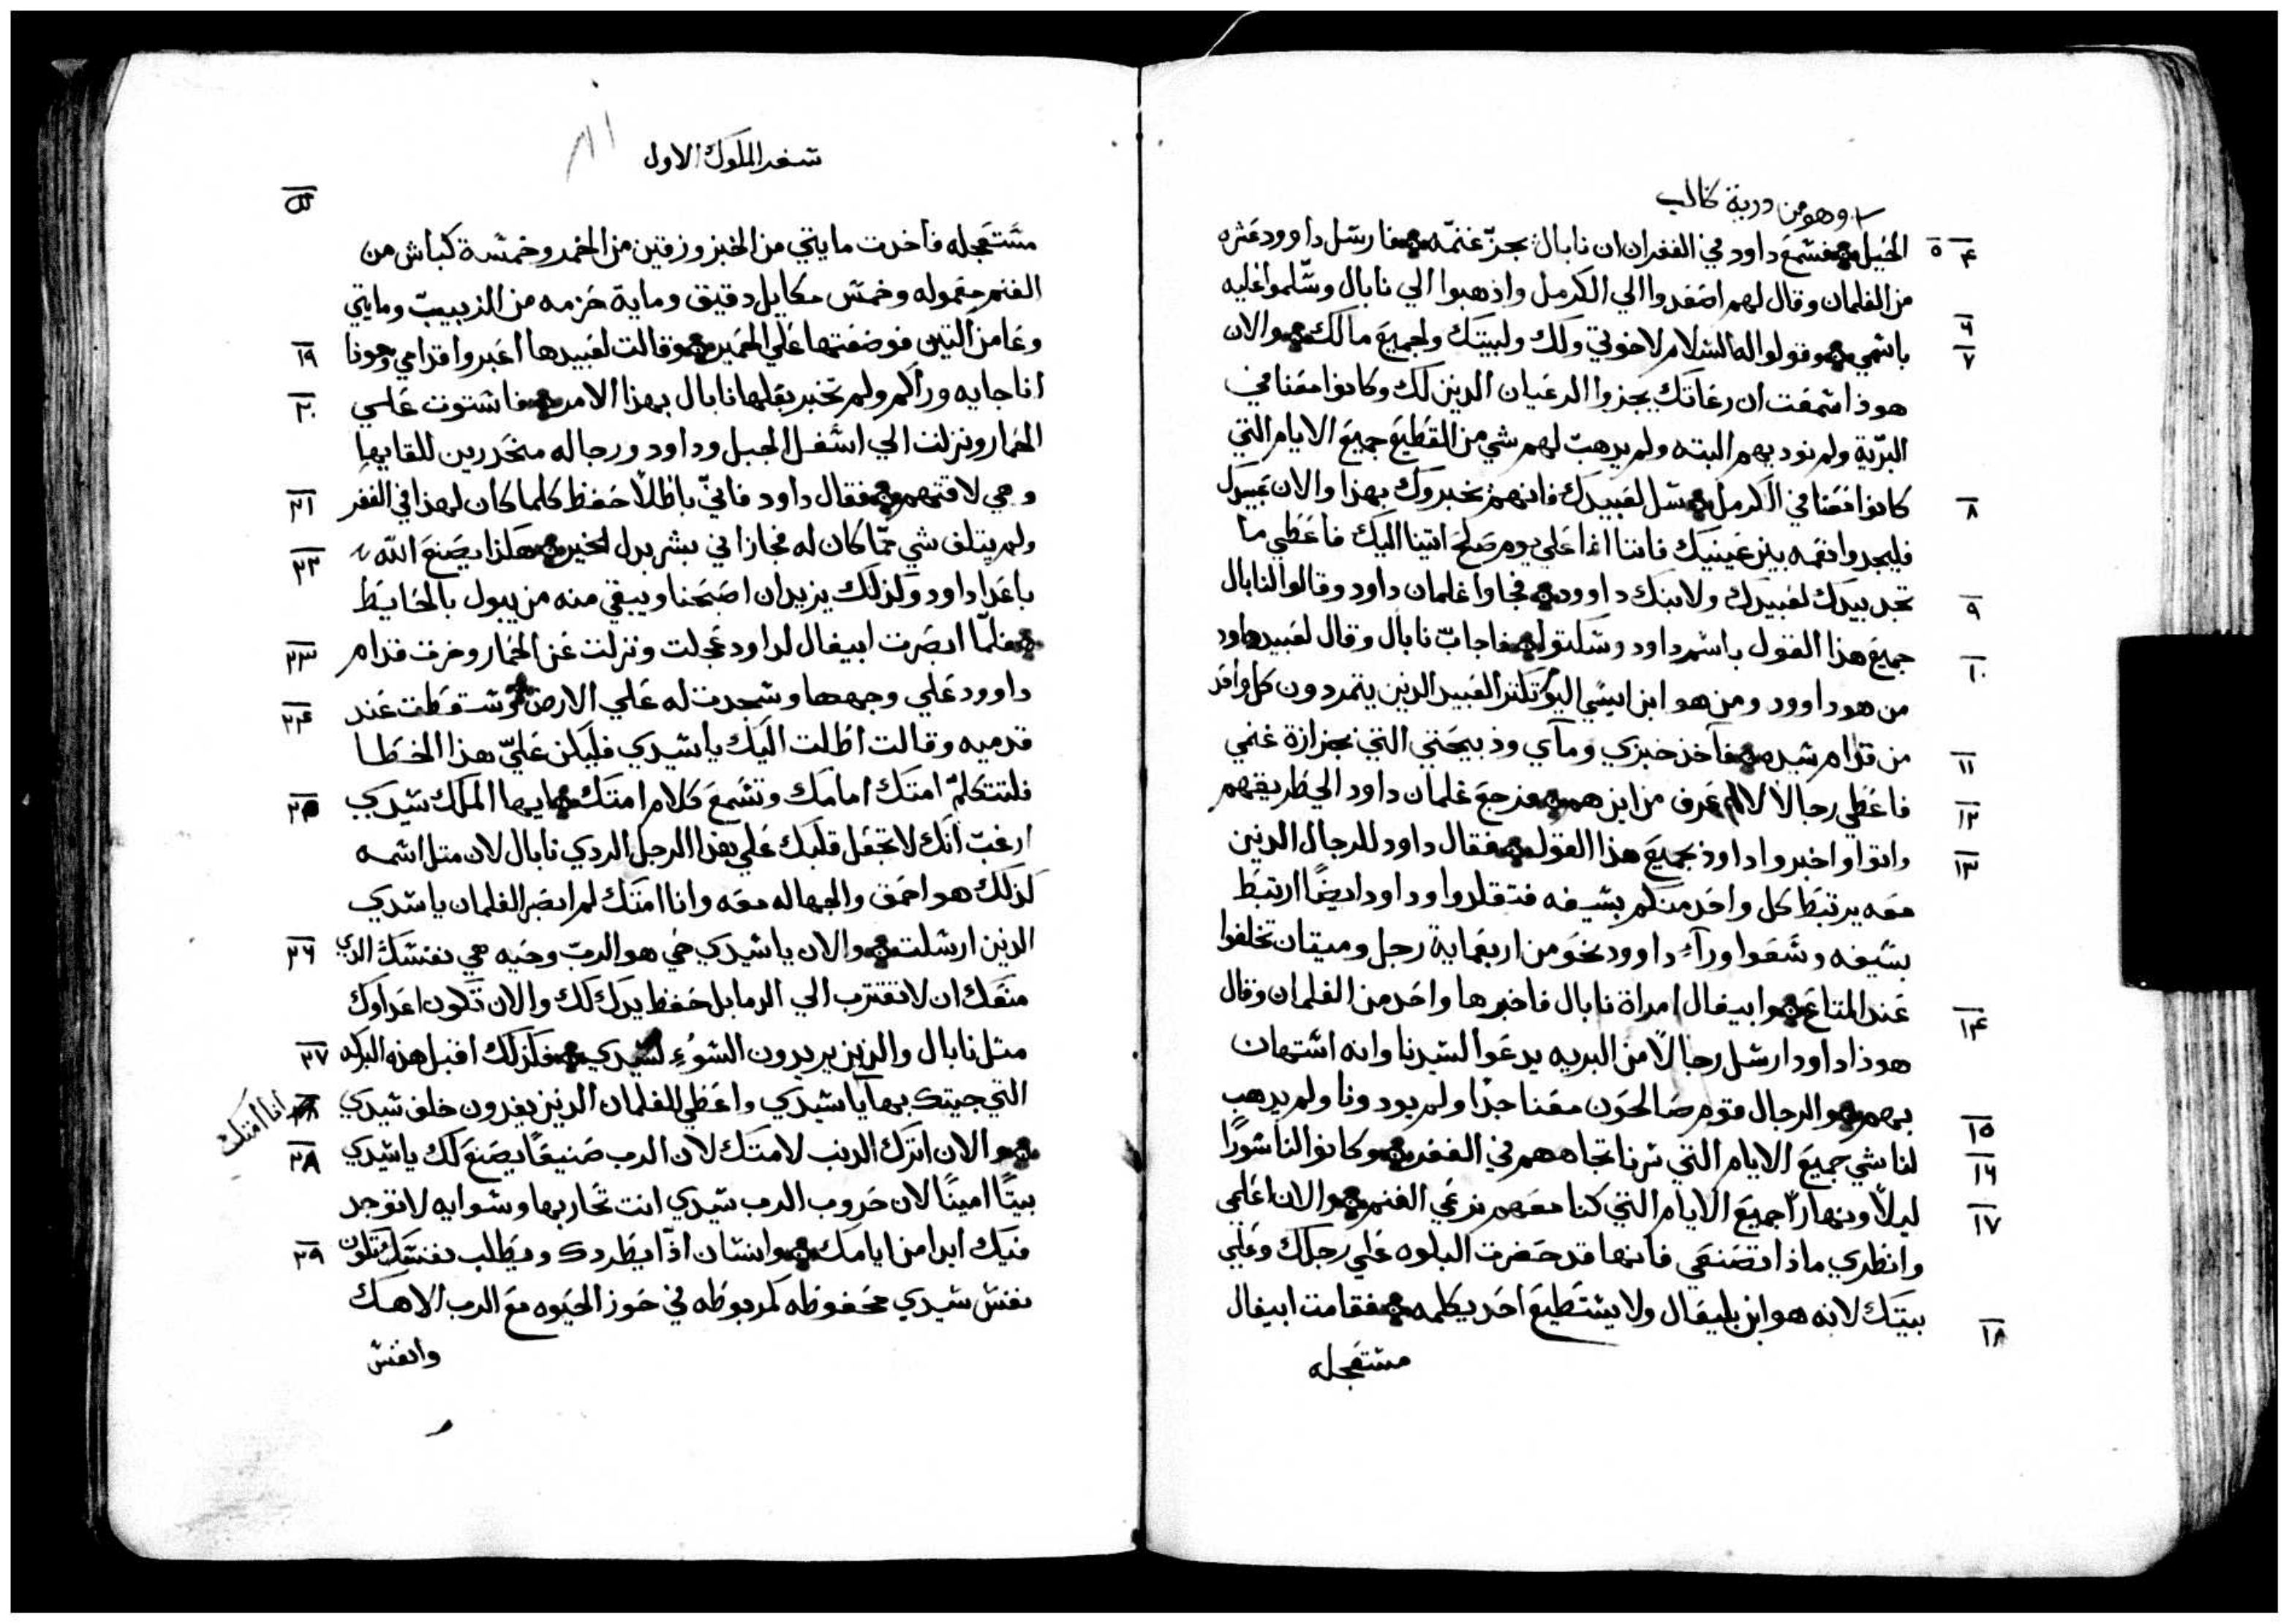 وهو من درية كالب
٤ ٥ الحيل فسمع داود في القفر ان نابال يجزّ غنمه فارسل داوود عشره
من الغلمان وقال لهم اصعدوا الي الكرمل واذهبوا الي نابال وسلموا عليه
٦ ٧ باسمي وقولوا له السلام لاخوتي ولك ولبيتك ولجميع مالك والان
هوذا سمعت ان رعاتك يجزوا الرعيان الدين لك وكانوا معنا في
البرّية ولم نوديهم البته ولم يدهب لهم شي من القطيع جميع الايام التي
٨ كانوا معنا في الكرمل سل لعبيدك فانهم يخبروك بهذا والان عبيدك
فليجدوا نعمه بين عينيك فاننا انما علي يوم صالح اتينا اليك فاعطي ما
٩ تجد بيدك لعبيدك ولابنك داوود فجاوا غلمان داود وقالوا لنابال
١٠ جميع هذا القول باسم داود وسكتوا فاجاب نابال وقال لعبيد داود
من هو داوود ومن هو ابن ايسي اليوم تكتر العبيد الدين يتمردون كل واحد
١١ من قدام سيده فآخذ خبزي ومآي ودبيحتي التي لجزازة غنمي
١٢ فاعطي رجالاً لا اعرف من اين هم فرجع غلمان داود الي طريقهم
١٣ واتوا واخبروا داود بجميع هذا القول فقال داود للرجال الدين
معه يرتبط كل واحد منكم بسيفه فتقلدوا وداود ايضًا ارتبط
بسيفه وسعوا ورآء داوود نحو من اربعماية رجل وميتان تخلفوا
١٤ عند المتاع وابيغال امراة نابال فاخبرها واحد من الغلمان وقال
هوذا داود ارسل رجالاً من البريه يدعوا لسيدنا وانه استهان
١٥ بهم والرجال قوم صالحون معنا جدًا ولم يودونا ولم يدهب
١٦ لنا شي جميع الايام التي سرنا تجاههم في القفر وكانوا لنا سورًا
١٧ ليلاً ونهاراً جميع الايام التي كنا معهم نرعي الغنم والان اعلمي
وانظري ماذا تصنعي فانها قد حضرت البلوه علي رجلك وعلي
١٨ بيتك لانه هو ابن بليعال ولا يستطيع احد يكلمه فقامت ابيغال
مستعجله
سفر الملوك الاول
مستعجله فاخدت مايتي من الخبز وزقين من الخمر وخمسة كباش من
الغنم معموله وخمس مكاييل دقيق وماية حزمه من الزبيب ومايتي
١٩ وعا من التين فوضعتها علي الحمير وقالت لعبيدها اعبروا قدامي وهوذا
٢٠ انا جايه وراكم ولم تخبر بعلها نابال بهذا الامر فاستوت علي
الحمار ونزلت الي اسفل الجبل وداود ورجاله منحدرين للقايها
٢١ وهي لاقتهم فقال داود فاني باطلاً حفظ كلما كان لهذا في القفر
٢٢ ولم يتلف شي ممّا كان له فجازاني بشر بدل الخير هكذا يصنع الله
باعدا داود وكذلك يزيد ان اصبحنا ويبقي منه من يبول بالحايط
٢٣ فلمّا ابصرت ابيغال لداود عجلت ونزلت عن الحمار وخرت قدام
٢٤ داوود علي وجهها وسجدت له علي الارض وسقطت عند
قدميه وقالت اطلت اليك يا سيدي فليكن عليّ هذا الخطا
٢٥ فلتتكلم امتك امامك وتسمع كلام امتك ايها الملك سيدي
ارغب انك لا تجعل قلبك علي هذا الرجل الردي نابال لان متل اسمه
كذلك هو احمق والجهاله معه وانا امتك لم ابصر الغلمان يا سيدي
٢٦ الدين ارسلت والان يا سيدي حي هو الرب وحيه هي نفسك الدي
منعك ان لا تقترب الي الدما بل حفظ يدك لك والان تكون اعداوك
٢٧ متل نابال والدين يريدون السوُء لسيدي فكذلك اقبل هذه البركه
التي جيتك بها يا سيدي واعطي للغلمان الدين يغدون خلف سيدي
انا امتك
٢٨ والان اترك الدنب لامتك لان الرب صنيعًا يصنع لك يا سيدي
بيتًا امينًا لان حروب الرب سيدي انت تحاربها وسوايه لا توجد
٢٩ فيك ابدا من ايامك وانسان اذّا يطردك ويطلب نفسك تكون
نفس سيدي محفوظه كمربوطه في حوز الحيوه مع الرب الاهك
وانفس